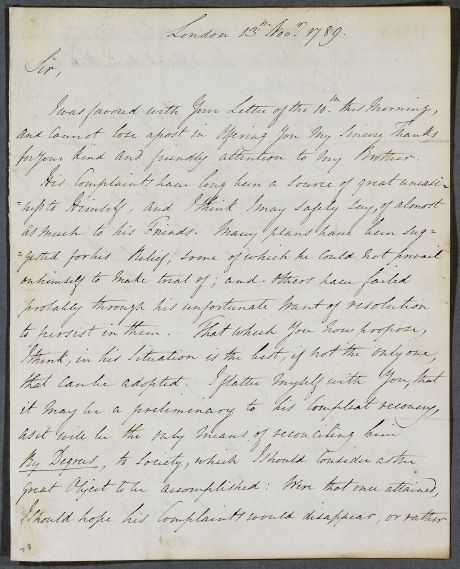 London 13th Novr 1789.
Sir,
I was favored with Your Letter of the 10th this Morning,
and cannot lose a post in Offering You My Sincere Thanks
for Your kind and friendly attention to My Brother.
His Complaints have long been a Source of great uneasi-
=ness to Himself, and I think I may safely say, of almost
as much to his Friends. Many plans have been sug-
=gested for his Relief, some of which he could not prevail
on himself to make trial of; and others have failed
probably through his unfortunate Want of resolution
to persist in them. That which You now propose,
I think, in his Situation is the best, if not the only one,
that can be adopted. I flatter Myself with You, that
it may be a preliminary to his Compleat recovery,
as it will be the only Means of reconciling him
By Degrees, to Society, which I should Consider as the
great Object to be accomplished: Were that once attained,
I should hope his Complaints would disappear, or rather